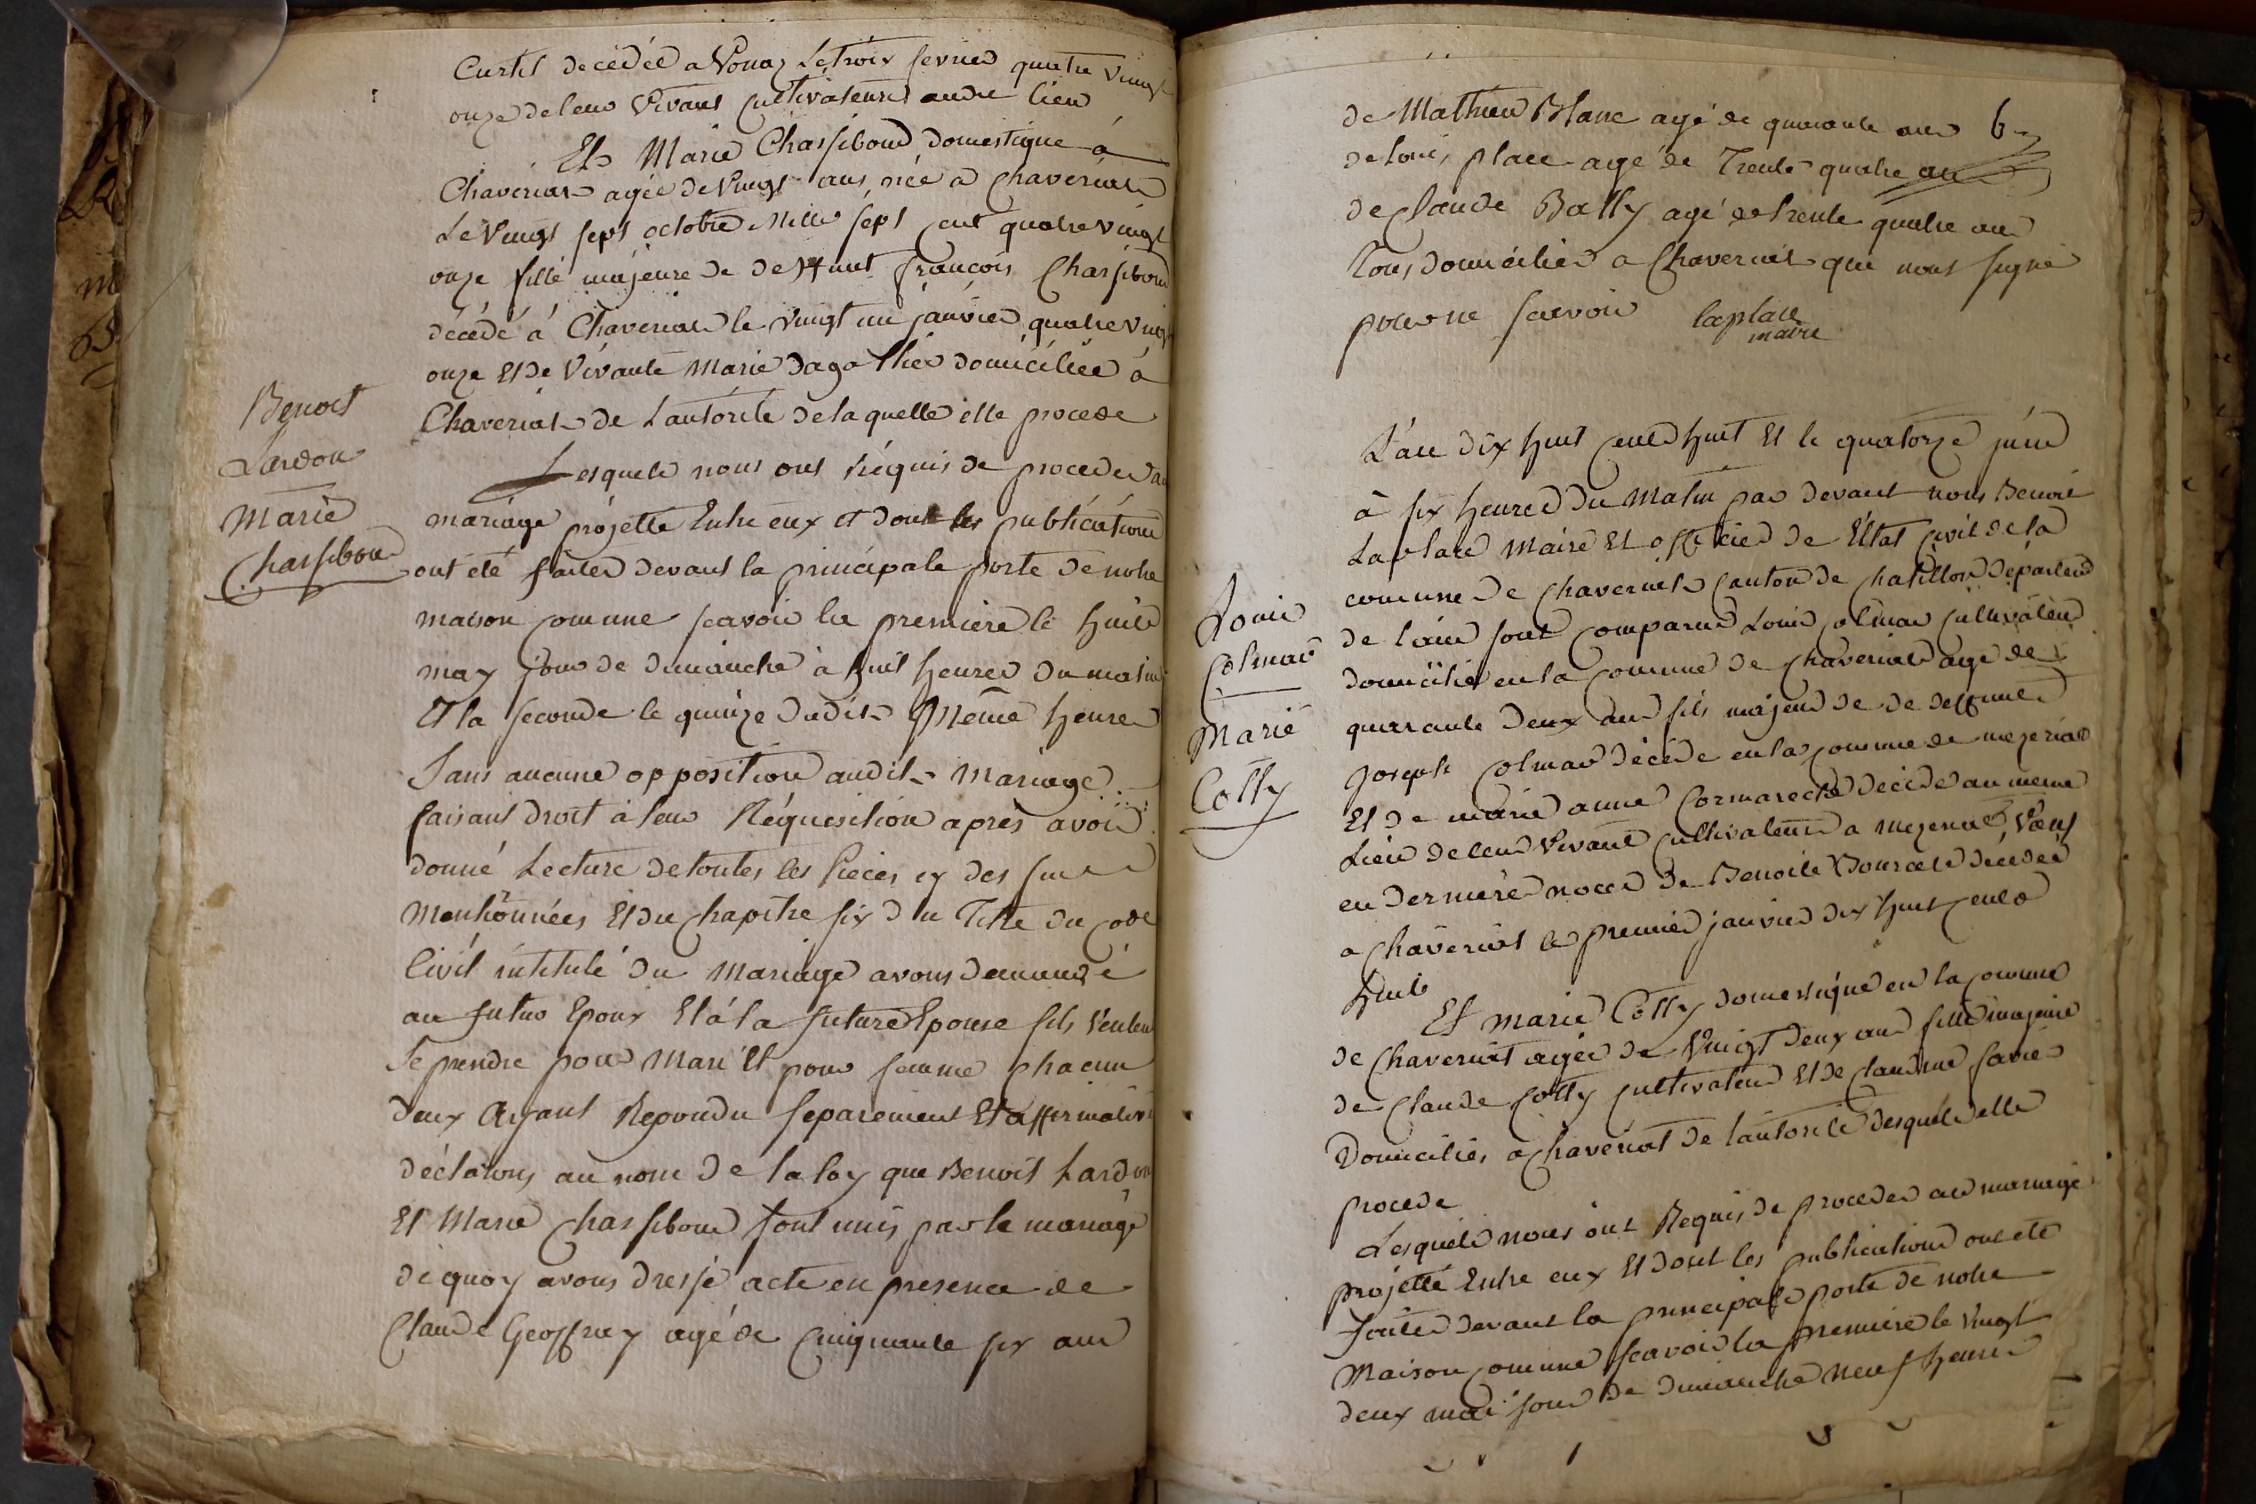 Curtil decedée a Vonaz Le trois fevrier quatre vingt
onze de leur Vivant Cultivateurs audit lieu
Et Marie Chassibout domestique à
Chaveriat agée de vingt ans née a chaveriat
Le Vingt sept octobre Mille sept cent quatre vingt
onze fille majeure de deffunt françois Chassibout
décédé à Chaveriat le Vingt un janvier quatre vingt
onze Et de Vivante Marie dagallier domiciliée à
Chaveriat de Lautorité de laquelle elle procede
Lesquels nous ont réquis de proceder au
mariage projetté Entre eux et dont les publications
ont été faites devant la principale porte de notre
maison commune scavoir la premiere le huit
may jour de dimanche à huit heures du matin
Et la seconde le quinze dudit Même heure
Sans aucune opposition audit mariage
faisant droit à leur Réquisition après avoir
donné Lecture de toutes les Pieces cy des sus
Mentionnées Et du chapitre six du Titre du Code
Civil intitulé du Mariage avons demandé
au futur Epoux Et à la future Epouse sils veulent
Se prendre pour Mari Et pour femme chacun
deux Ayant Repondu separement Et affirmativt
déclarons au nom de la loy que Benoit Lardon
Et Marie Chassibout sont unis par le mariage
de quoy avons dressé acte en presence de
Claude Geoffray agé de Cinquante six ans
Benoit
Lardon
Marie
Chassibout
de Mathieu Blanc agé de quarante ans 6
de Louis place agé de Trente quatre ans
de Claude Bally agé de trente quatre ans
Tous domiciliés a Chaveriat qui nont signé
pour ne scavoir laplace
maire
L'an dix huit cent huit Et le quatorze juin
à six heures du Matin par devant nous Benoit
Laplace Maire Et officier de l'Etat Civil de la
commune de Chaveriat Canton de Chatillon départent
de l'ain sont comparus Louis Colmar Cultivateur
domicilié en la Commune de Chaveriat agé de
quarante deux ans fils majeur de deffunt
joseph Colmar décédé en la Commune de mezeriat
Et de marie anne Cormareche décédé au meme
Lieu de leur Vivant Cultivateurs a mezeriat Veuf
en dernière noces de Benoite Bourcet décedée
a Chaveriat le premier janvier dix huit cent
huit
Et marie Cotty domestique en la commune
de Chaveriat agée de Vingt deux ans fille majeure
de Claude Cotty Cultivateur Et de Claudine favre
Domiciliés a Chaveriat de lautorité desquels elle
procede
Lesquels nous ont Requis de proceder au mariage
projetté Entre eux Et dont les publications ont été
faites devant la principale porte de notre
Maison commune scavoir la premiere le vingt
deux mai jour de dimanche neuf heures
Louis
Colmar
Marie
Cotty